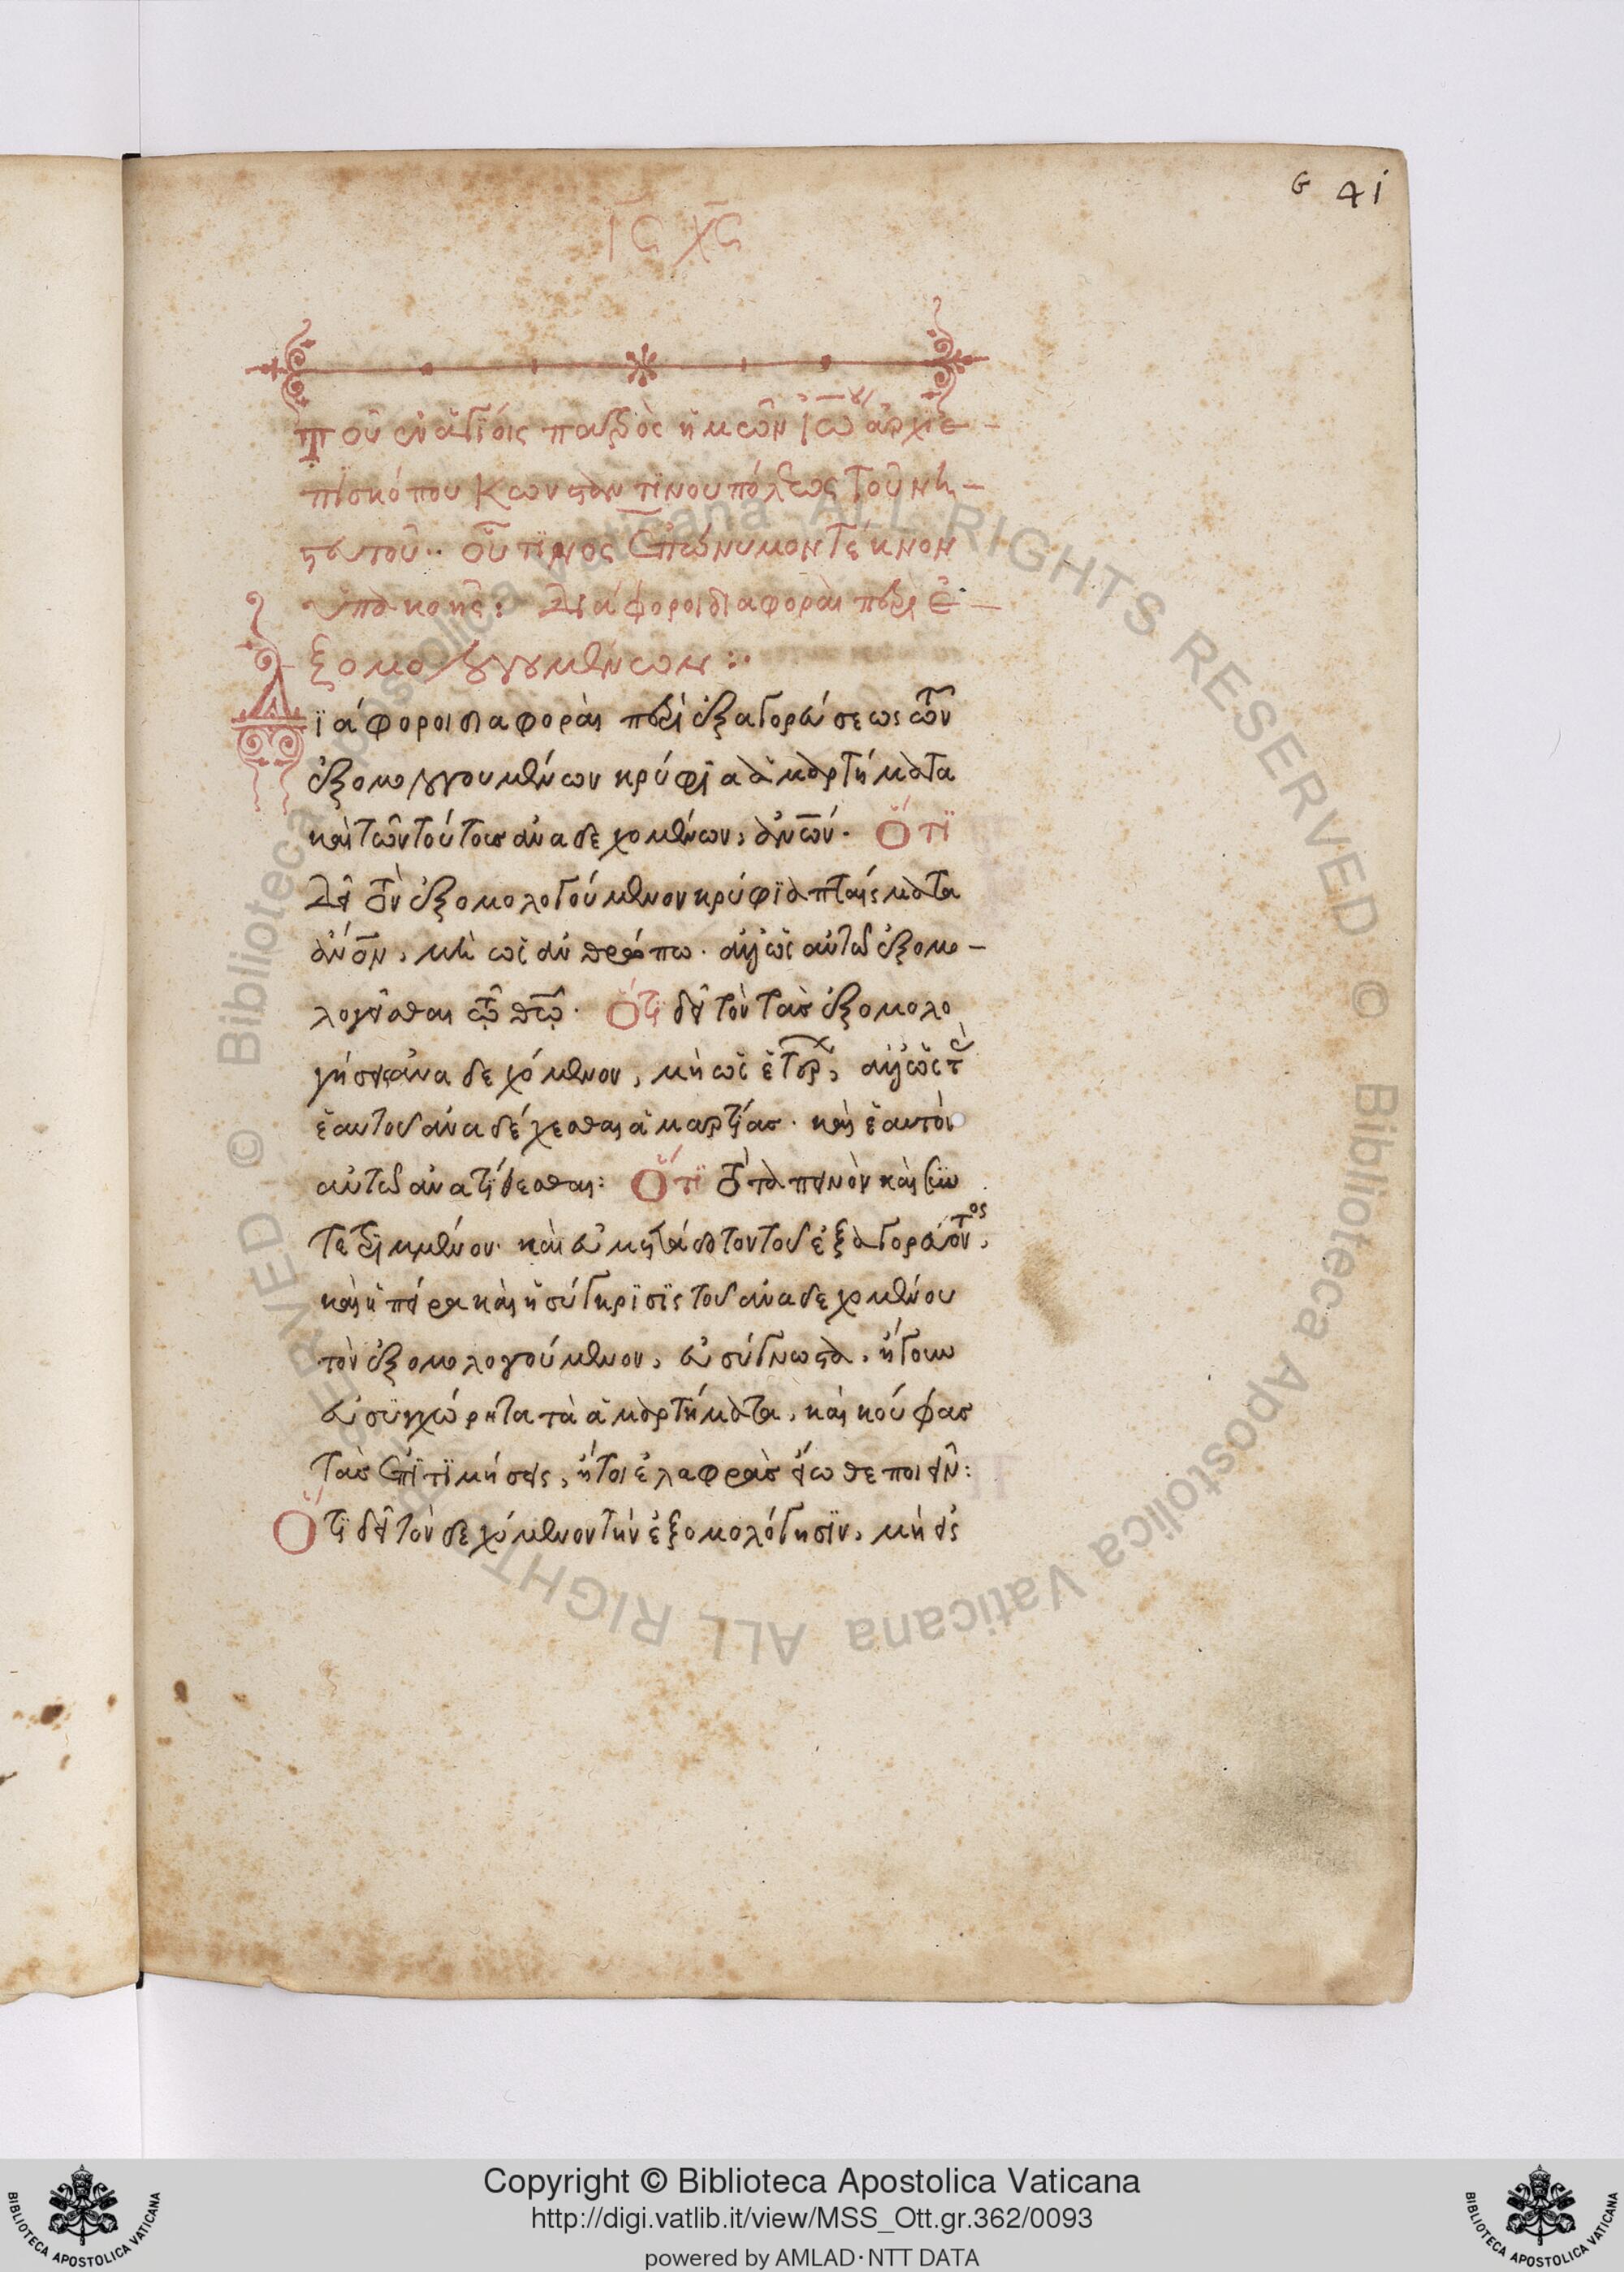 G 41
ΙΣ ΧΣ
Τοῦ ἐν ἁγίοις πατρὸς ἡμῶν Ἰω ἀρχιε-
πισκόπου Κωνσταντινουπόλεως τοῦ νη-
στευτοῦ·· οὗτινος ἐπώνυμον τέκνον
ὑπακοῆς: Διάφοροι διαφοραὶ περὶ ἐ-
ξομολογουμένων:·
Διάφοροι διαφοραὶ περὶ ἐξαγορεύσεως τῶν
ἐξομολογουμένων κρύφια ἁμαρτήματα
καὶ τῶν τούτους ἀναδεχομένων, ἀνων. Ὅτι
δεῖ τὸν ἐξομολογούμενον κρύφια πταίσματα
ἀνον, μὴ ὡς ἀνθρώπω. ἀλλ' ὡς αὐτῶ ἐξομο-
λογεῖσθαι τῶ θω. Ὅτι δεῖ τὸν τὰς ἐξομολο
γήσεις ἀναδεχόμενον, μὴ ὡς ἑτέρου, ἀλλ' ὡς τὰς
ἑαυτοῦ ἀναδέχεσθαι ἁμαρτίας. καὶ ἑαυτὸν
αὐτῶ ἀνατίθεσθαι: Ὅτι τὸ ταπεινὸν καὶ συν
τετριμμένον. καὶ εὐκατάνυκτον τοῦ ἐξαγορεύοντος,
καὶ ἡ πεῖρα καὶ ἡ σύγκρισις τοῦ ἀναδεχομένου
τὸν ἐξομολογούμενον, εὐσύγνωστα, ἤγουν
εὐσυγχώρητα τὰ ἁμαρτήματα, καὶ κούφας
τὰς ἐπιτιμήσεις, ἤτοι ἐλαφρὰς εἴωθε ποιεῖν:
Ὅτι δεῖ τὸν δεχόμενον τὴν ἐξομολόγησιν, μὴ εἰς
Copyright © Biblioteca Apostolica Vaticana
http://digi.vatlib.it/view/MSS_Ott.gr.362/0093
powered by AMLAD·NTT DATA
BIBLIOTECA APOSTOLICA VATICANA
BIBLIOTECA APOSTOLICA VATICANA
© Biblioteca Apostolica Vaticana ALL RIGHTS RESERVED © Biblioteca Apostolica Vaticana ALL RIGHTS RESERVED